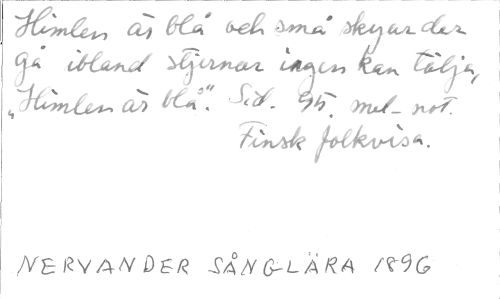 Himlen är blå och små skyar der
gå ibland stjernor ingen kan tälja,
"Himlen är blå". Sid. 95. mel-not.
Finsk folkvisa.
NERVANDER SÅNGLÄRA 1896